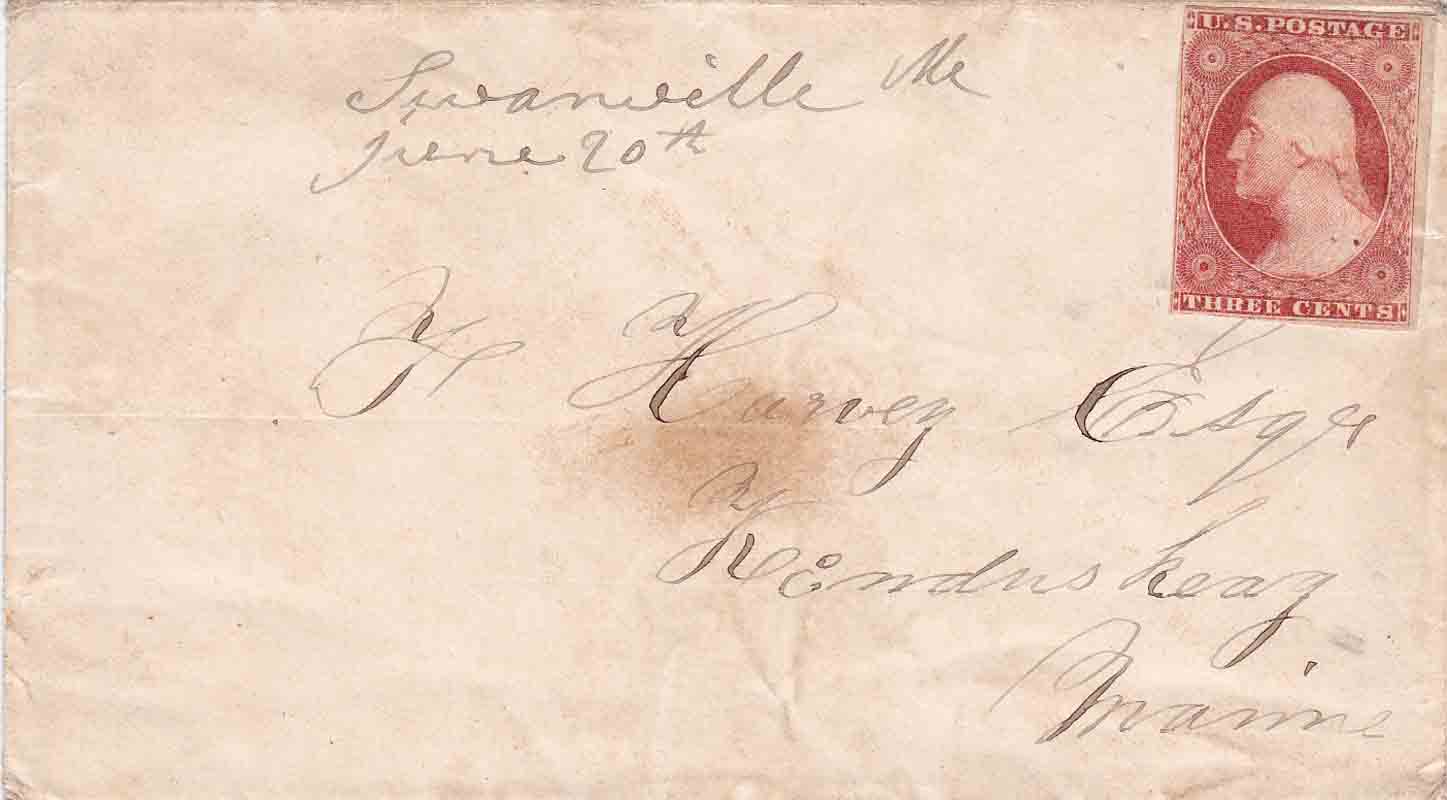 U.S. POSTAGE
THREE CENTS
Swanville Me
June 20th
F Harvey Esqr
Kenduskeag
Maine